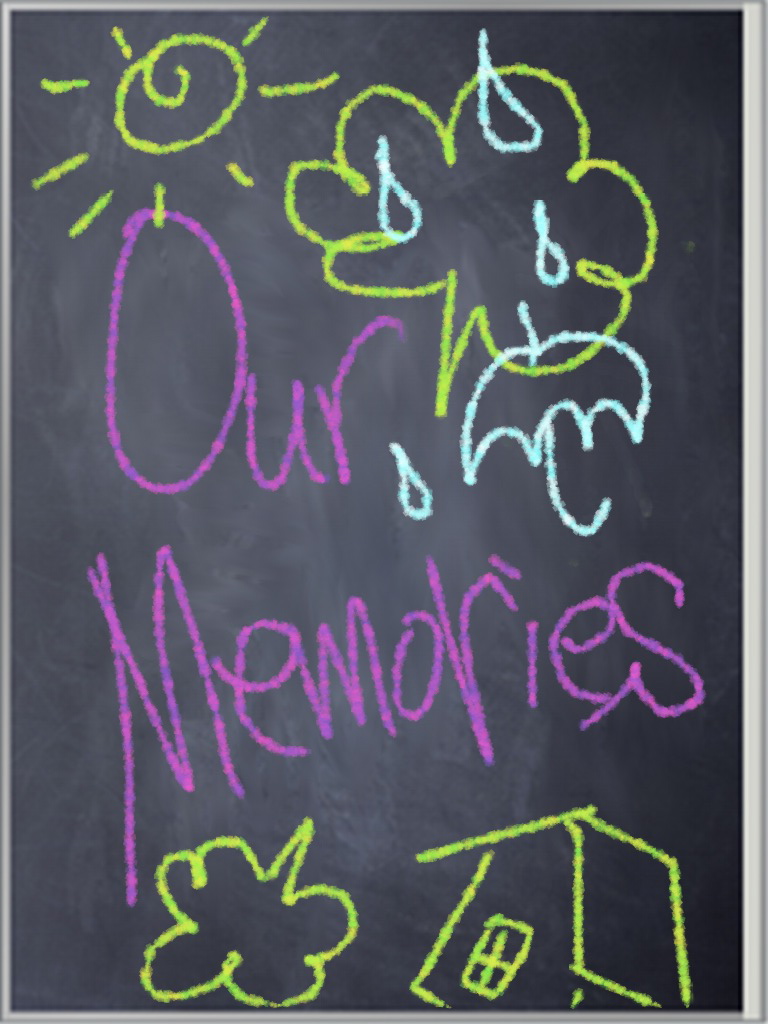 Our
Memories